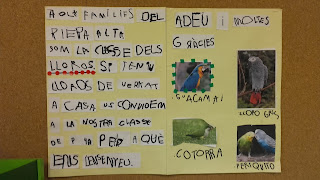 A OLT FAMÍLIES DEL
PIEPA ALTA
SOM LA CLSSE DELS
LLOROS. SI TENIU
LLOROS DE VERITAT
A CASA US CONVIDEM
A LA NOSTRA CLASSE
DE P
A QUÈ
ENS
ADEU I MOLTES
GRÀCIES
GUACAMAI
LLORO GRIS
COTORRA
PERIQUITO